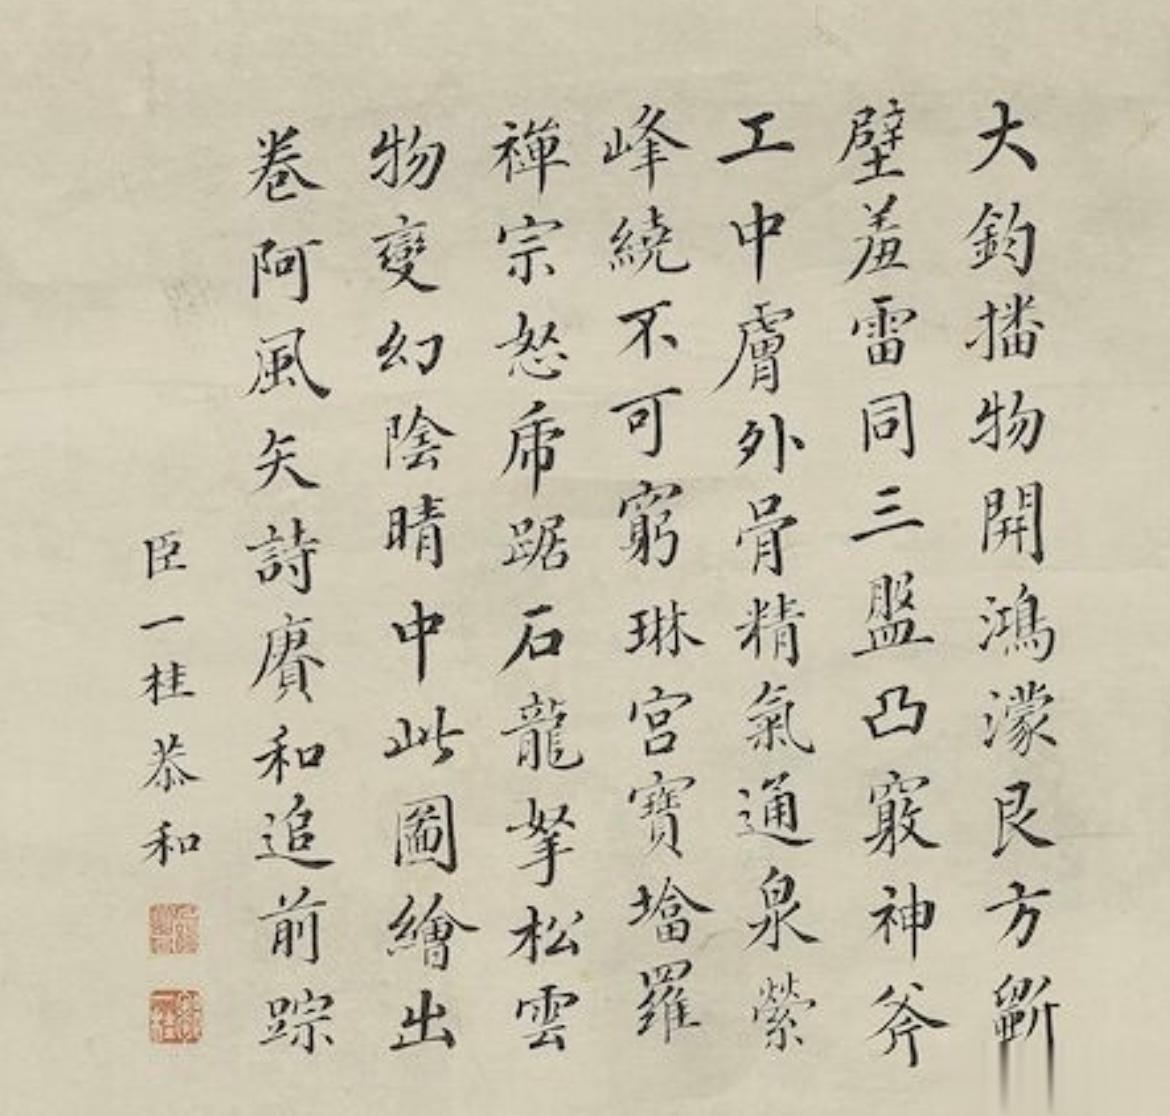 大鈞播物開鴻濛艮方斵
壁羞雷同三盤凸竅神斧
工中膚外骨精氣通泉縈
峰繞不可窮琳宮寶墖羅
禪宗怒虎踞石龍拏松雲
物變幻陰晴中此圖繪出
卷阿風矢詩賡和追前踪
臣一桂恭和